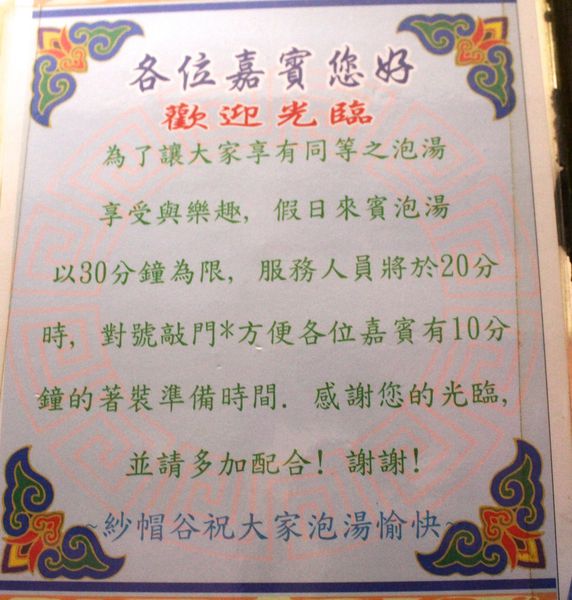 各位嘉賓您好
歡迎光臨
為了讓大家享有同等之泡湯
享受與樂趣, 假日來賓泡湯
以30分鐘為限, 服務人員將於20分
時, 對號敲門*方便各位嘉賓有10分
鐘的著裝準備時間. 感謝您的光臨,
並請多加配合! 謝謝!
~紗帽谷祝大家泡湯愉快~